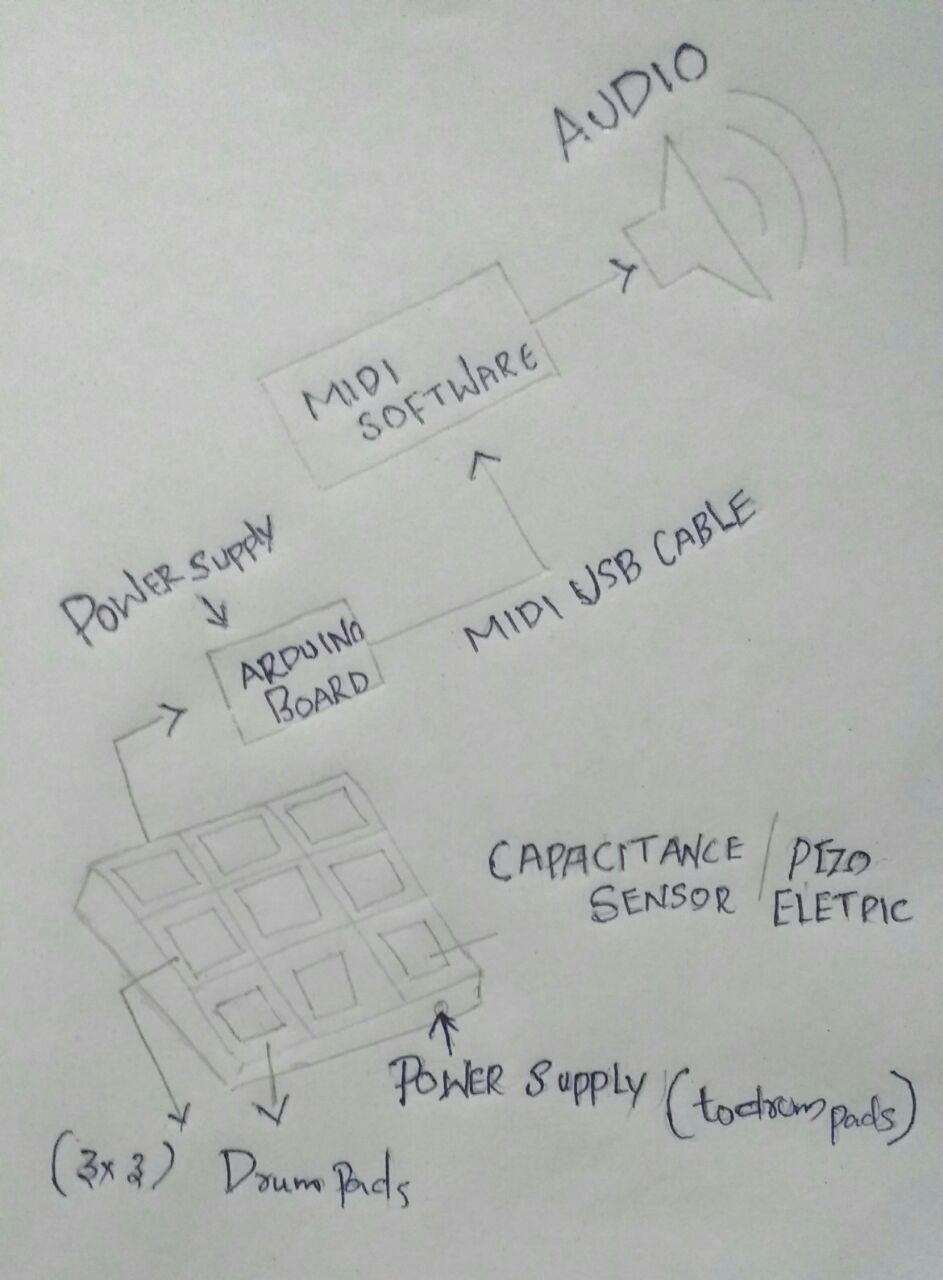 AUDIO
MIDI
SOFTWARE
POWER Supply
MIDI USB CABLE
ARDUINO
BOARD
CAPACITANCE / PIZO
SENSOR / ELETRIC
POWER SUPPLY (to drum pads)
(3x3) Drum Pads